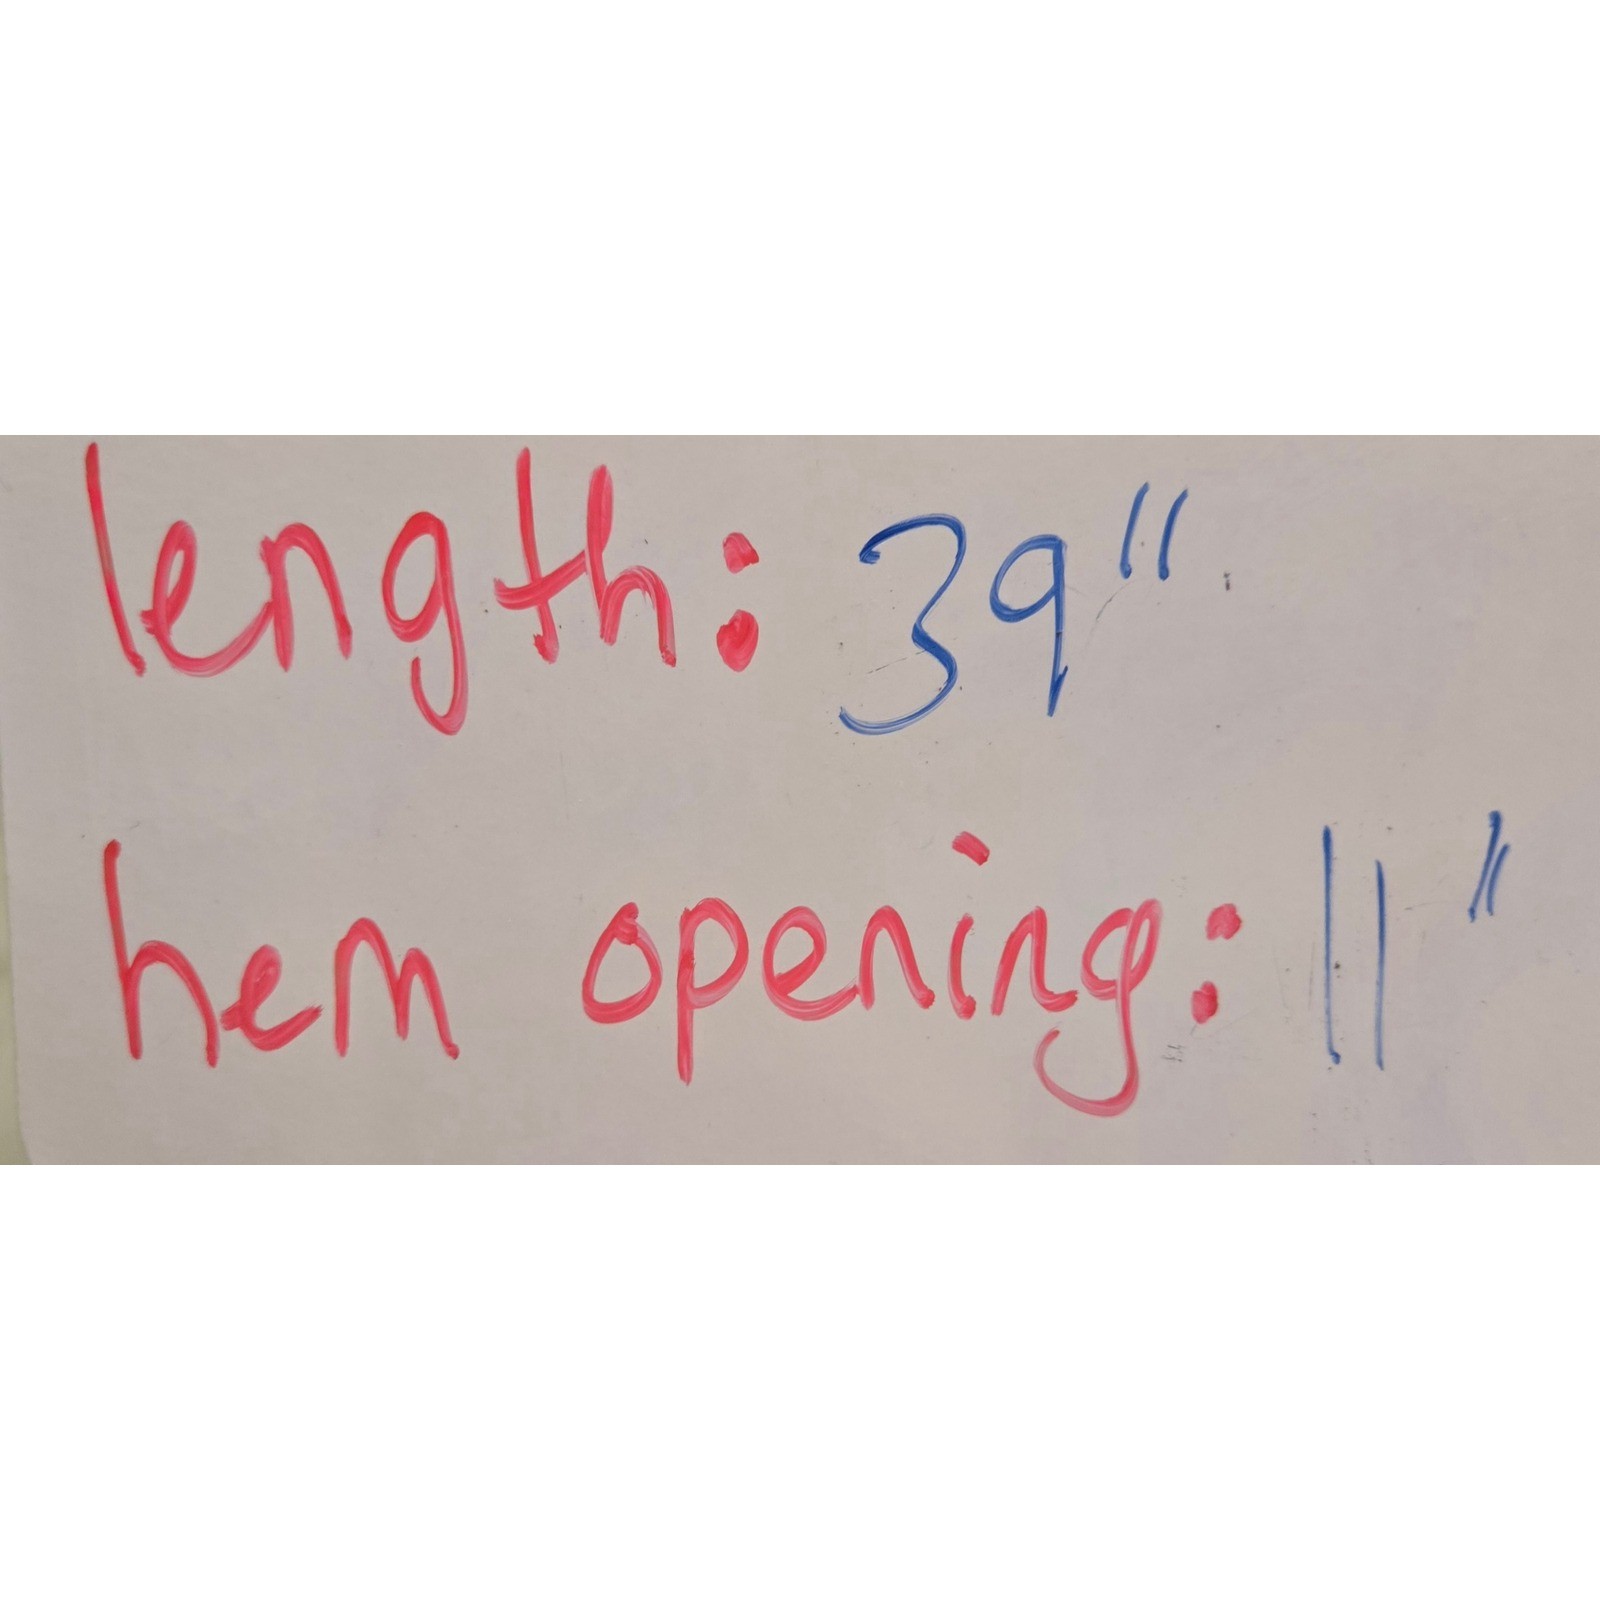 length: 39"
hem opening: 11"